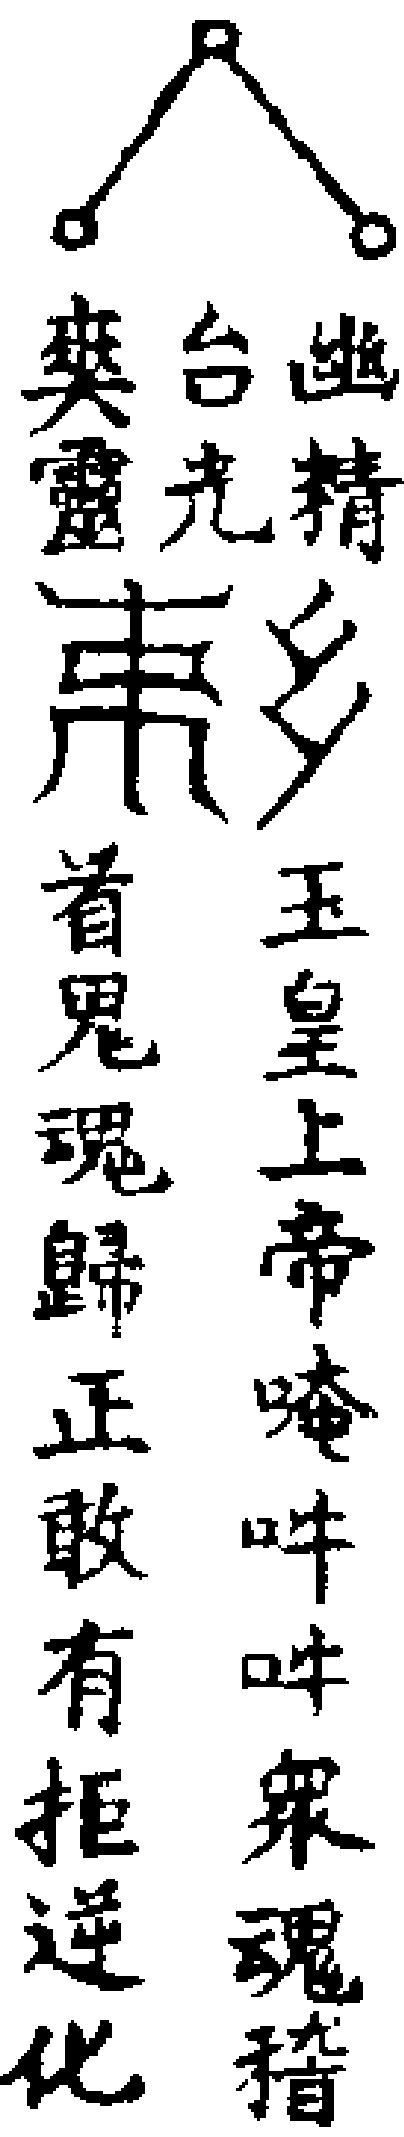 幽精
台光
爽靈
玉皇上帝唵吽吽眾魂稽
首鬼魂歸正敢有拒逆化